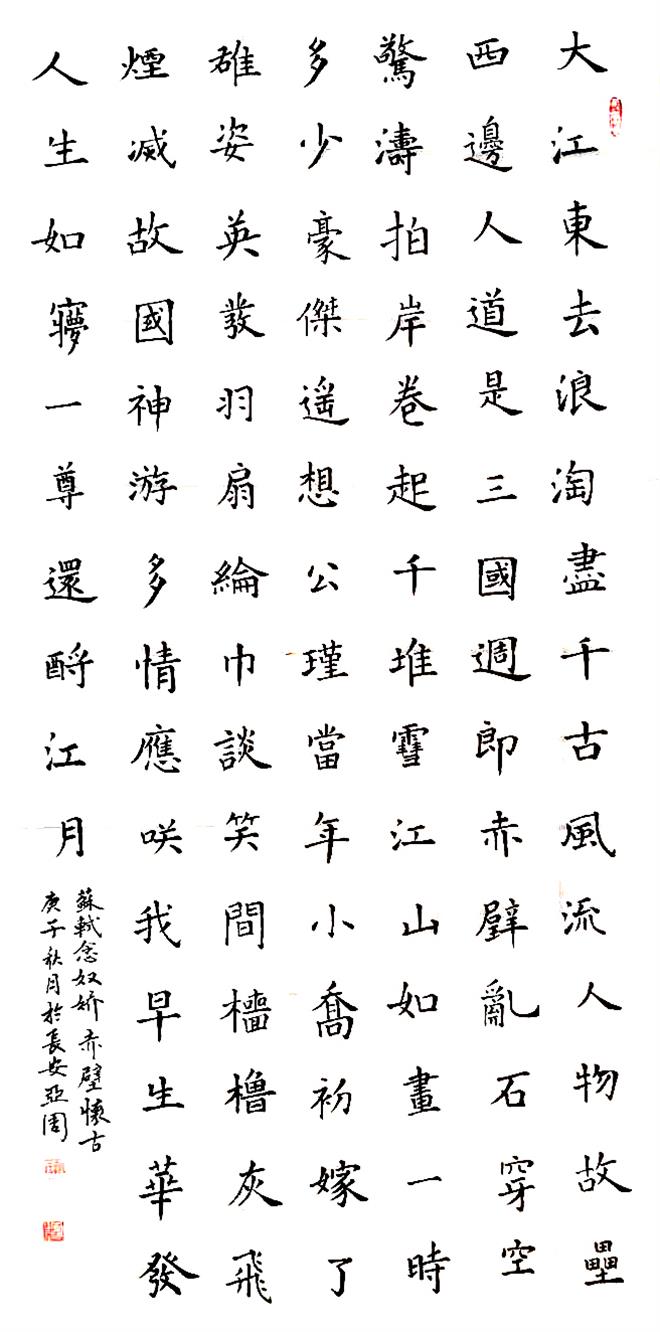 大江東去浪淘盡千古風流人物故壘
西邊人道是三國週郎赤壁亂石穿空
驚濤拍岸卷起千堆雪江山如畫一時
多少豪傑遥想公瑾當年小喬初嫁了
雄姿英發羽扇綸巾談笑間檣櫓灰飛
煙滅故國神游多情應咲我早生華發
人生如㝱一尊還酹江月
蘇軾念奴嬌赤壁懷古
庚子秋月於長安亞周